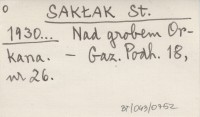 o
SAKŁAK St.
1930... Nad grobem Or-
kana. — Gaz. Podh. 18,
nr 26.